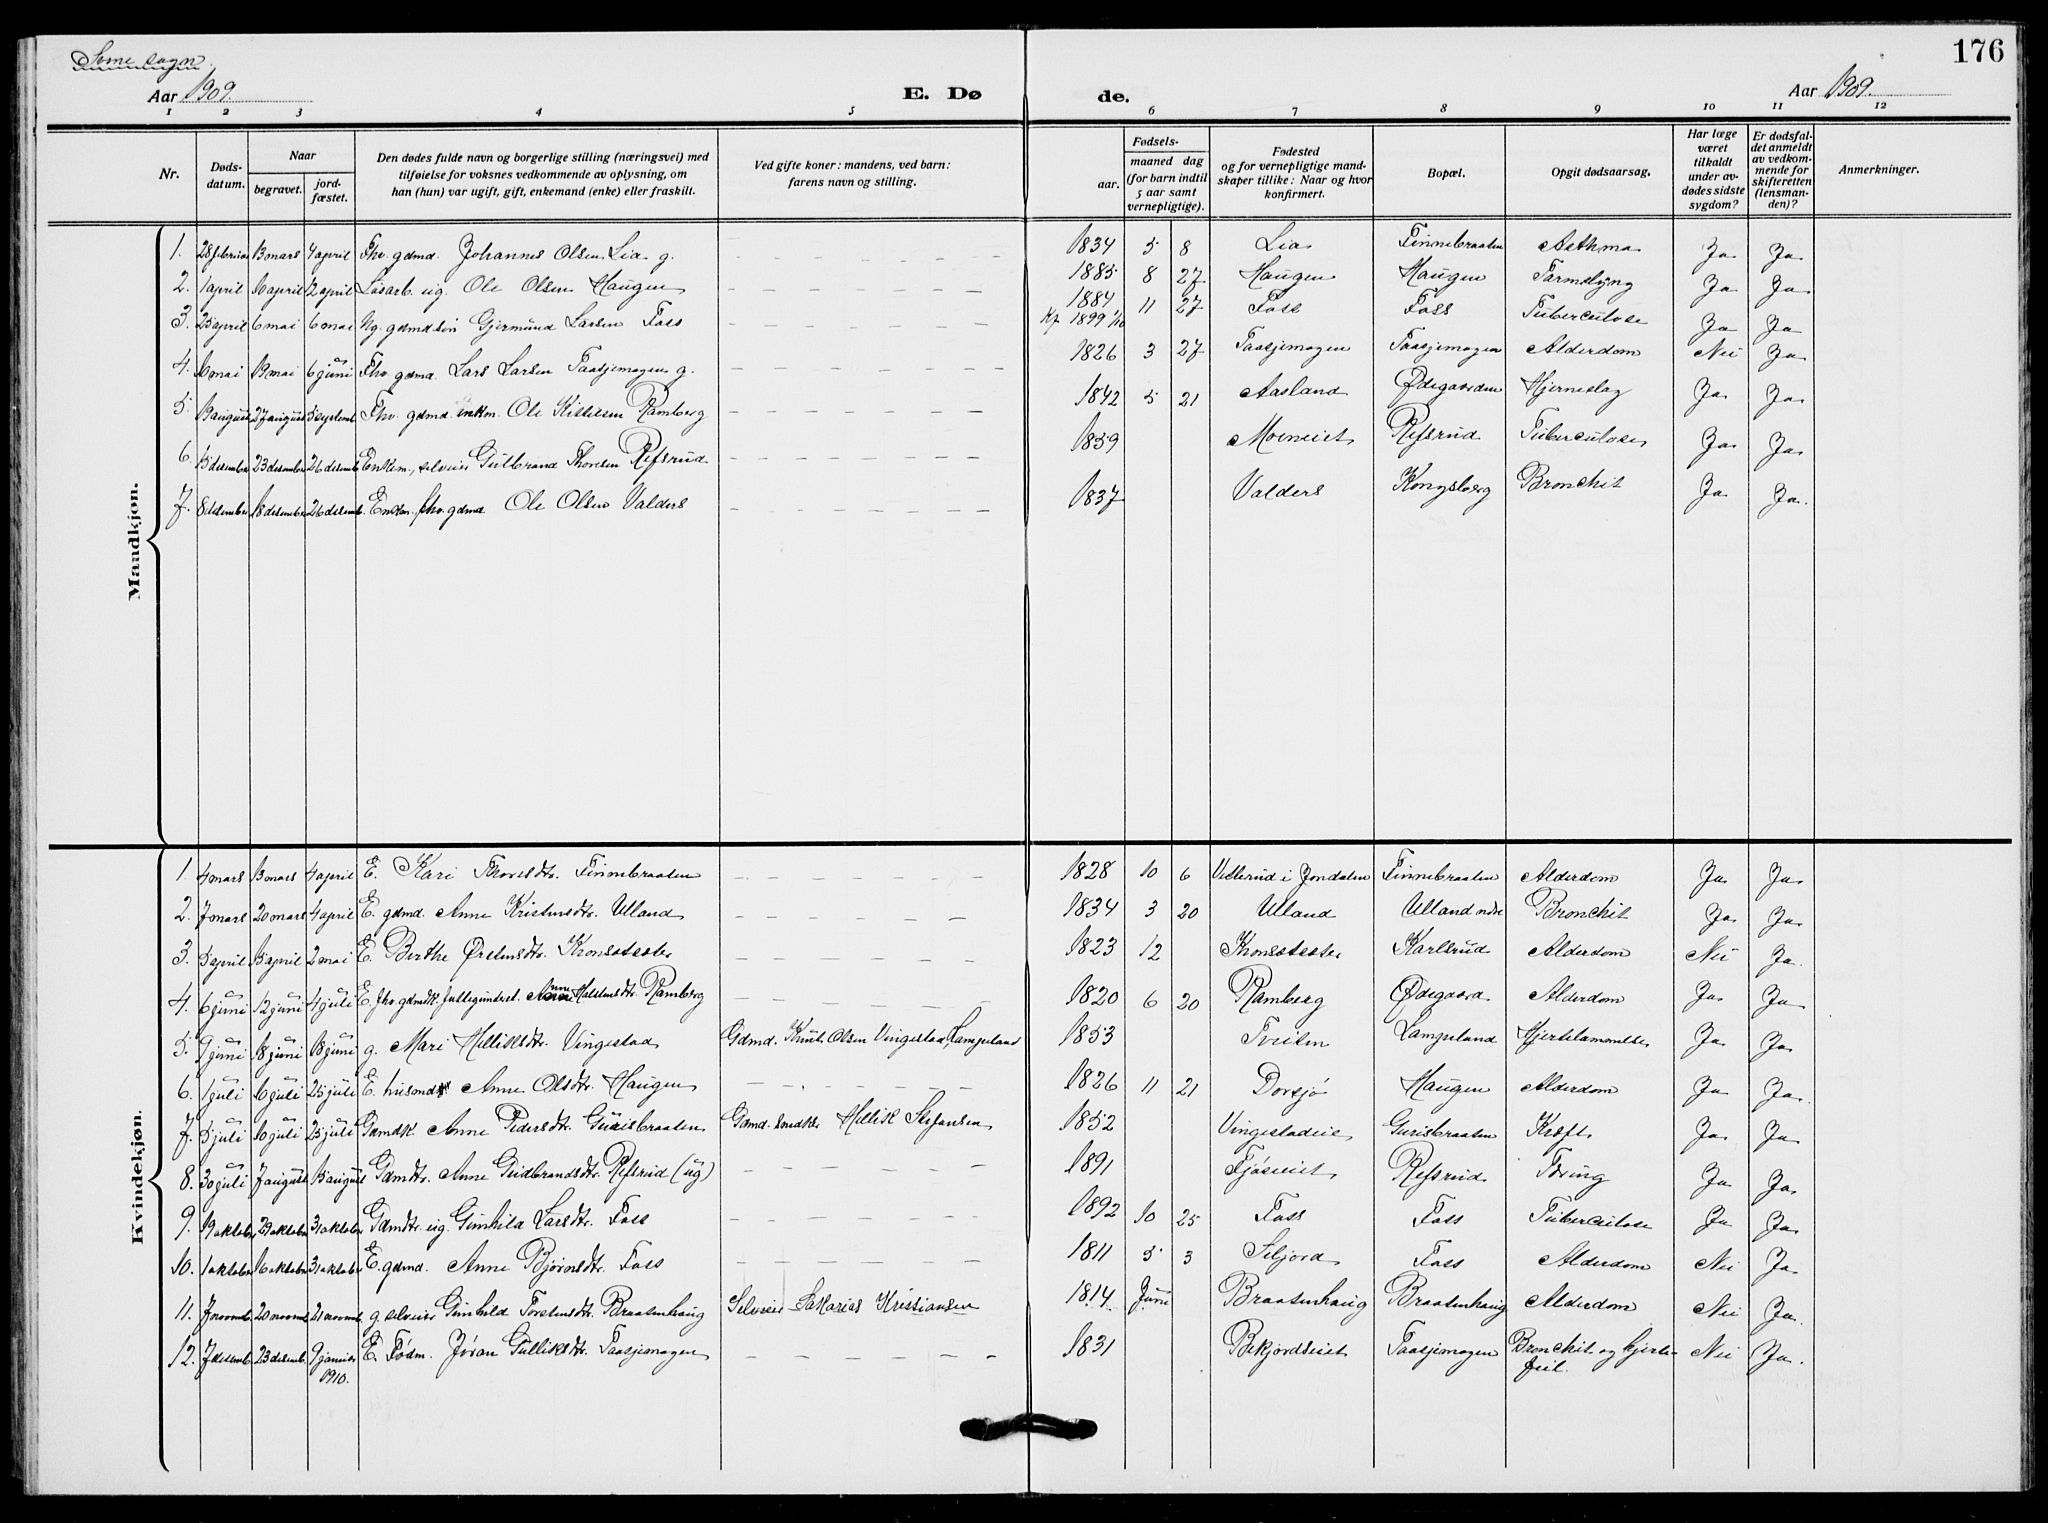 Svene sogn.
176
Aar 1909.
E. Dø de.
Aar 1909.
1 2 3 4 5 6 7 8 9 10 11 12
Nr.
Døds-datum.
Naar
begravet.
jord-fæstet.
Den dødes fulde navn og borgerlige stilling (næringsvei) med
tilføielse for voksnes vedkommende av oplysning, om
han (hun) var ugift, gift, enkemand (enke) eller fraskilt.
Ved gifte koner: mandens, ved barn:
farens navn og stilling.
Fødsels-
aar.
maaned dag
(for barn indtil
5 aar samt
vernepligtige).
Fødested
og for vernepligtige mand-
skaper tillike: Naar og hvor
konfirmert.
Bopæl.
Opgit dødsaarsag.
Har læge
været
tilkaldt
under av-
dødes sidste
sygdom?
Er dødsfal-
det anmeldt
av vedkom-
mende for
skifteretten
(lensman-
den)?
Anmerkninger.
Mandkjøn.
1. 28 februar 13 mars 4 april Fhv. gdmd. Johannes Olsen Lia g. 1834 5 8 Lia Finnebraaten Asthma Ja Ja
2. 1 april 10 april 2 april Løsarb. ug. Ole Olsen Haugen 1885 8 27 Haugen Haugen Tarmslyng Ja Ja
3. 25 april 6 mai 6 mai Ug. gdmd søn Gjermund Larsen Foss 1884 11 27 Foss Foss Tuberculose Ja Ja
Kf. 1899 1/10
4. 10 mai 19 mai 6 juni Fhv gdmd. Lars Larsen Taasjemogen g. 1826 3 27 Taasjemogen Taasjemogen Alderdom Nei Ja
5. 18 august 27 august 5 septemb. Fhv. gdmd. enkm. Ole Kittilsen Ramberg 1842 5 21 Aasland Ødegaarden Hjerneslag Ja Ja
6. 15 desember 23 desember 26 desemb. Enkem., selveier Gulbrand Thoresen Refsrud 1859 Moeneiet Refsrud Tuberculose Ja Ja
7. 8 desember 18 desember 26 desemb. Enkm. fhv. gdmd. Ole Olsen Valders 1837 Valders Kongsberg Bronchit Ja Ja.
Kvindekjøn.
1. 4 mars 13 mars 4 april E. Kari Toresdtr. Finnebraaten 1828 10 6 Villerud i Jondalen Finnebraaten Alderdom Ja Ja
2. 7 mars 20 mars 4 april E. gdmd. Anne Kristensdtr. Ulland 1834 3 20 Ulland Ulland ndre Bronchit Ja Ja
3. 5 april 15 april 2 mai E. Berthe Østensdtr. Komsteste 1823 12 Komsteste Karlsrud Alderdom Nei Ja
4. 6 juni 12 juni 4 juli E. fhv. gdmdk. Anne Halstensdtr. Ramberg 1820 6 20 Ramberg Ødegaard Alderdom Ja Ja
5. 9 juni 18 juni 18 juni g. Mari Helliksdtr. Vingestad Gdmd. Knut Olsen Vingestad, Lampeland 1853 Tveiten Lampeland Hjertelammelse Ja Ja
6. 1 juli 10 juli 25 juli E. husmds Anne Olsdtr. Haugen 1826 11 21 Dorsjø Haugen Alderdom Ja Ja.
7. 5 juli 10 juli 25 juli Gdmdk. Anne Pedersdtr. Gurisbraaten Gdmd. snedker Hellik Stefansen 1852 Vingestadeie Gurisbraaten Kræft Ja Ja
8. 30 juli 7 august 15 august Gdmdtr. Anne Gudbrandsdtr. Refsrud (ug) 1891 Fjøseiet Refsrud Tæring Ja Ja
9. 19 oktober 29 oktober 31 oktober Gdmdtr. ug. Gunhild Larsdtr. Foss 1892 10 25 Foss Foss Tuberculose Ja Ja
10. 1 oktober 16 oktober 31 oktober E. gdmd. Anne Bjørnsdtr. Foss 1811 5 3 Seljord Foss Alderdom Nei Ja
11. 7 novemb. 20 novemb. 21 novemb. g. selveier Gunhild Torstensdtr. Braatenhaug Selveier Sakarias Kristiansen 1814 Juni Braatenhaug Braatenhaug Alderdom Nei Ja
12. 7 desemb. 23 desemb. 9 januar 1910. E. Fødm. Jøran Gulliksdtr. Taasjemogen 1831 Bekjordseiet Taasjemogen Bronchit og hjerte-
feil. Nei Ja.